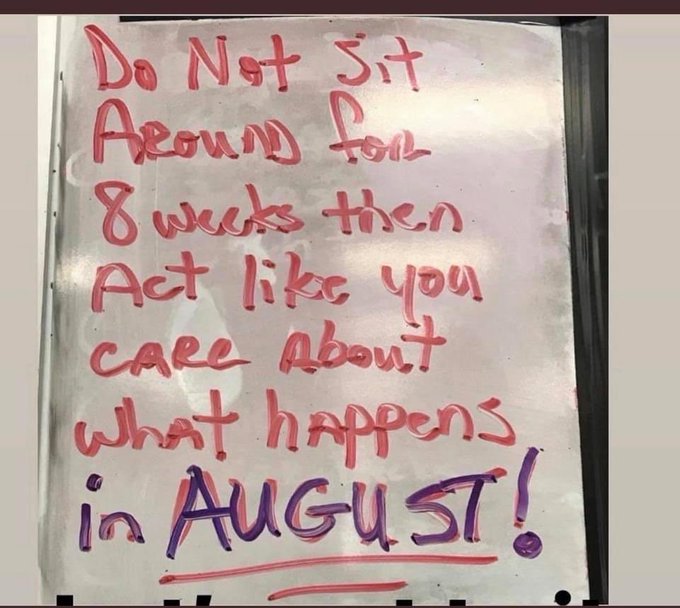 Do Not Sit
Around for
8 weeks then
Act like you
care About
what happens
in AUGUST!